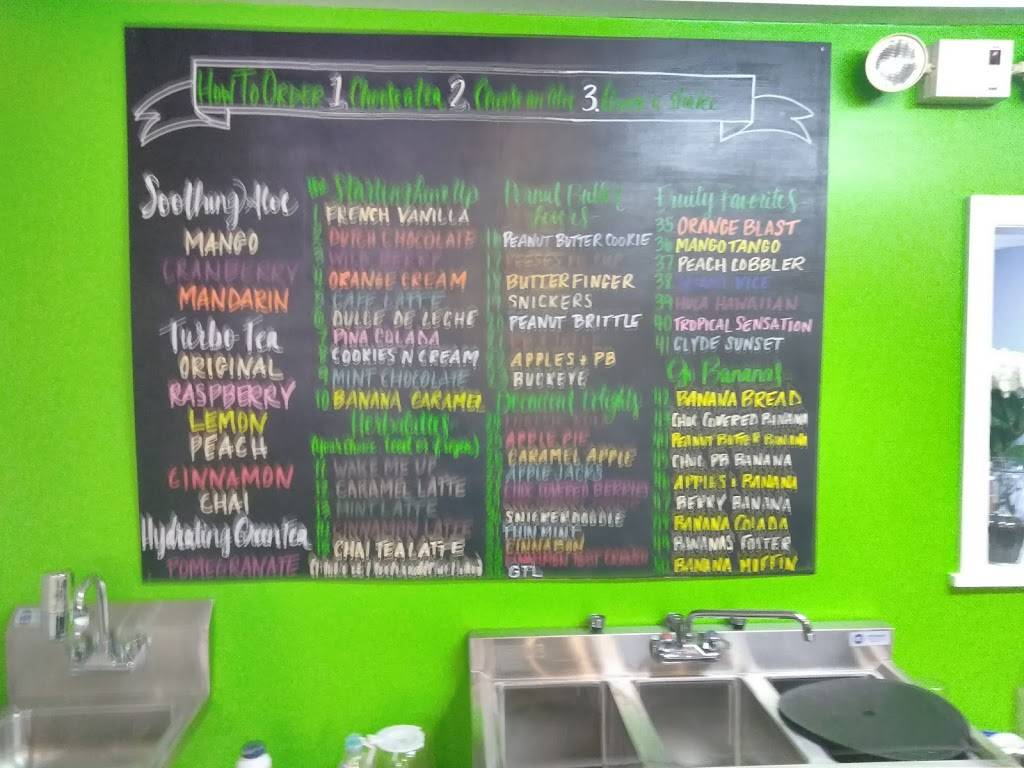 How To Order 1. Choose a tea 2. Choose an aloe 3.
Soothing Aloe
MANGO
CRANBERRY
MANDARIN
Turbo Tea
ORIGINAL
RASPBERRY
LEMON
PEACH
CINNAMON
CHAI
Hydrating Green Tea
POMEGRANATE
Starting Line Up
FRENCH VANILLA
DUTCH CHOCOLATE
WILD BERRY
ORANGE CREAM
CAFE LATTE
DULCE DE LECHE
PINA COLADA
8 COOKIES N CREAM
9 MINT CHOCOLATE
10 BANANA CARAMEL
Herbalattes
WAKE ME UP
CARAMEL LATTE
MINT LATTE
CINNAMON LATTE
CHAI TEA LATTE
Peanut Butter
Lovers
PEANUT BUTTER COOKIE
REESES PB CUP
BUTTERFINGER
SNICKERS
PEANUT BRITTLE
APPLES + PB
BUCKEYE
Decadent Delights
APPLE PIE
CARAMEL APPLE
APPLE JACKS
CHOC COVERED BERRIES
SNICKERDOODLE
THIN MINT
CINNABON
GTL
Fruity Favorites
35 ORANGE BLAST
36 MANGO TANGO
37 PEACH COBBLER
38
39 HULA HAWAIIAN
40 TROPICAL SENSATION
41 CLYDE SUNSET
Go Bananas
42 BANANA BREAD
CHOC COVERED BANANA
PEANUT BUTTER BANANA
CHOC PB BANANA
APPLES + BANANA
BERRY BANANA
BANANA COLADA
BANANAS FOSTER
BANANA MUFFIN